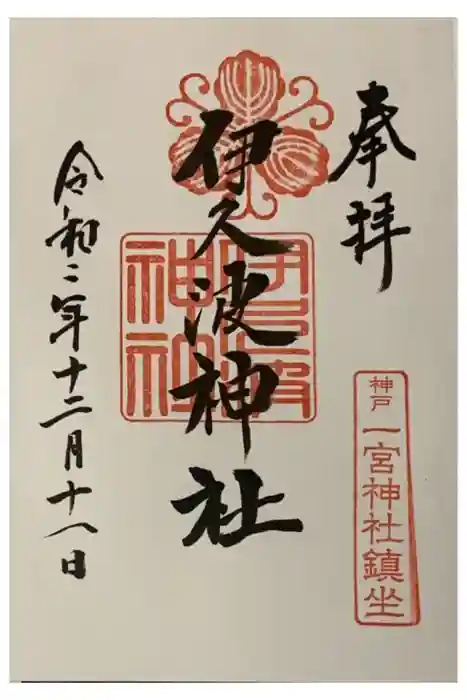 奉拝
神戸 一宮神社鎮坐
伊久波神社
伊久波
神社
令和二年十二月十八日